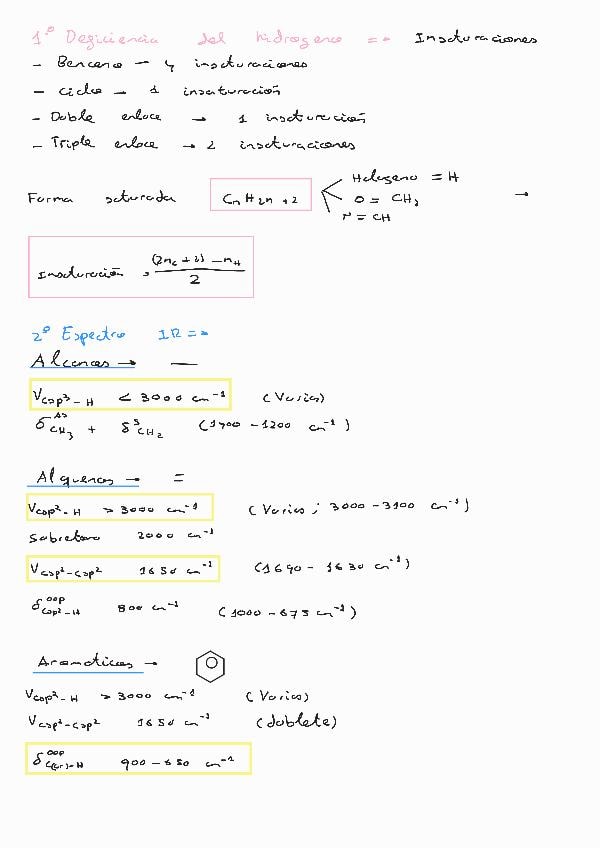 1º Deficiencia del hidrogeno => Insaturaciones
- Benceno → 4 insaturaciones
- ciclo → 1 insaturación
- Doble enlace → 1 insaturación
- Triple enlace → 2 insaturaciones
Forma saturada CnH2n+2
Halogeno = H
O = CH2
N = CH
→
Insaturación = ((2nc + 2) - nH) / 2
2º Espectro IR =>
Alcanos → —
νCsp³-H < 3000 cm⁻¹ (Varios)
δ^AS CH3 + δ^S CH2 (1400 - 1200 cm⁻¹)
Alquenos → =
νCsp²-H > 3000 cm⁻¹ (Varios ; 3000 - 3100 cm⁻¹)
Sobretono 2000 cm⁻¹
νCsp²-Csp² 1650 cm⁻¹ (1690 - 1630 cm⁻¹)
δ^OOP Csp²-H 800 cm⁻¹ (1000 - 675 cm⁻¹)
Aromaticos →
νCsp²-H > 3000 cm⁻¹ (Varios)
νCsp²-Csp² 1650 cm⁻¹ (doblete)
δ^OOP C(ar)-H 900 - 650 cm⁻¹